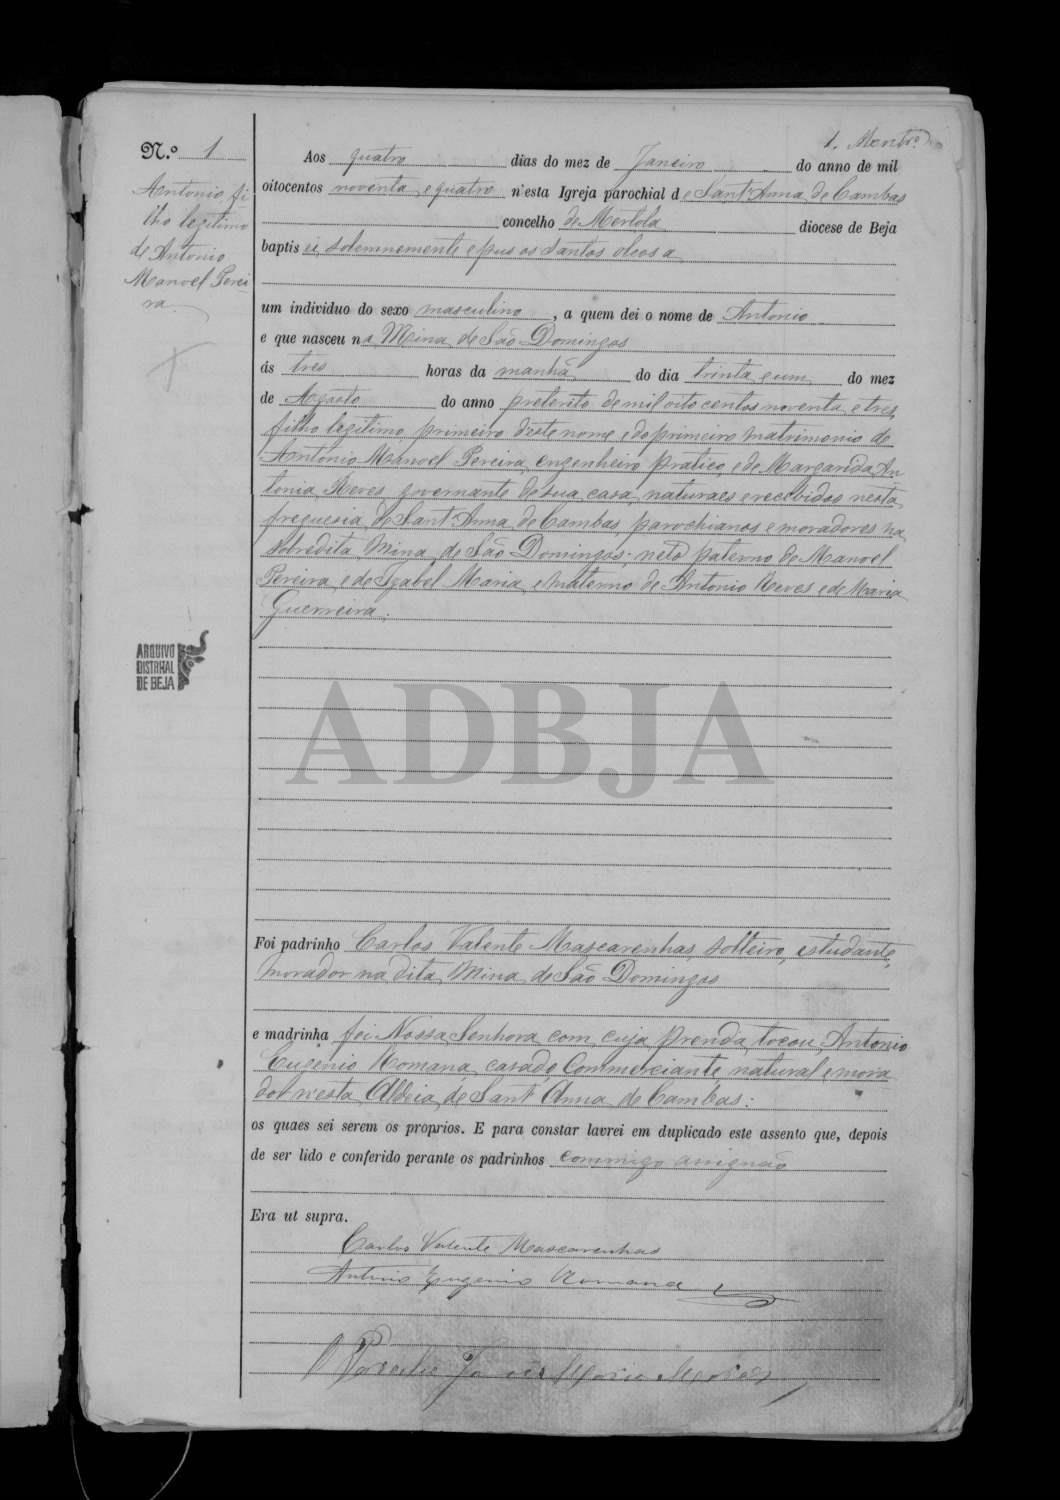 N.º 1
Antonio, fi-
lho legitimo
de Antonio
Manoel Perei-
ra.
1.
Aos quatro dias do mez de Janeiro do anno de mil
oitocentos noventa e quatro n'esta Igreja parochial de Sant'Anna de Cambas
concelho de Mertola diocese de Beja
baptisei solemnemente e pus os Santos oleos a
um individuo do sexo masculino, a quem dei o nome de Antonio
e que nasceu na Mina de São Domingos
ás tres horas da manhã do dia trinta e um do mez
de Agosto do anno preterito de mil oito centos noventa e tres,
filho legitimo, primeiro deste nome e do primeiro matrimonio de
Antonio Manoel Pereira, engenheiro pratico, e de Margarida An-
tonia Neves, governante de sua casa, naturaes e recebidos nesta
freguesia de Sant'Anna de Cambas, parochianos e moradores na
sobredita Mina de São Domingos; neto paterno de Manoel
Pereira e de Izabel Maria, e materno de Antonio Neves e de Maria
Guerreira.
ARQUIVO
DISTRITAL
DE BEJA
ADBJA
Foi padrinho Carlos Valente Mascarenhas, solteiro, estudante,
morador na dita Mina de São Domingos
e madrinha foi Nossa Senhora com cuja prenda tocou Antonio
Eugenio Romana, casado, Commerciante, natural e mora-
dor n'esta Aldeia de Sant'Anna de Cambas:
os quaes sei serem os proprios. E para constar lavrei em duplicado este assento que, depois
de ser lido e conferido perante os padrinhos commigo assignão
Era ut supra.
Carlos Valente Mascarenhas
Antonio Eugenio Romana
O Parocho